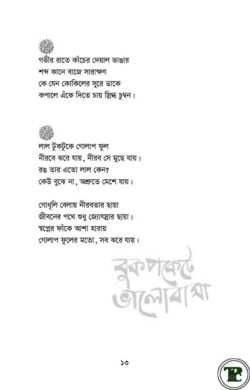 গভীর রাতে কাঁচের দেয়াল ভাঙার
শব্দ কানে বাজে সারাক্ষণ
কে যেন কোকিলের সুরে ডাকে
কপালে এঁকে দিতে চায় স্নিগ্ধ চুম্বন।
লাল টুকটুকে গোলাপ ফুল
নীরবে ঝরে যায়, নীরব সে মুছে যায়।
রঙ তার এতো লাল কেন?
কেউ বুঝে না, অশ্রুতে মেশে যায়।
গোধূলি বেলায় নীরবতার ছায়া
জীবনের পথে শুধু জ্যোৎস্নার ছায়া।
স্বপ্নের ফাঁকে আশা হারায়
গোলাপ ফুলের মতো, সব ঝরে যায়।
বুকপকেটে
ভালোবাসা
১৩